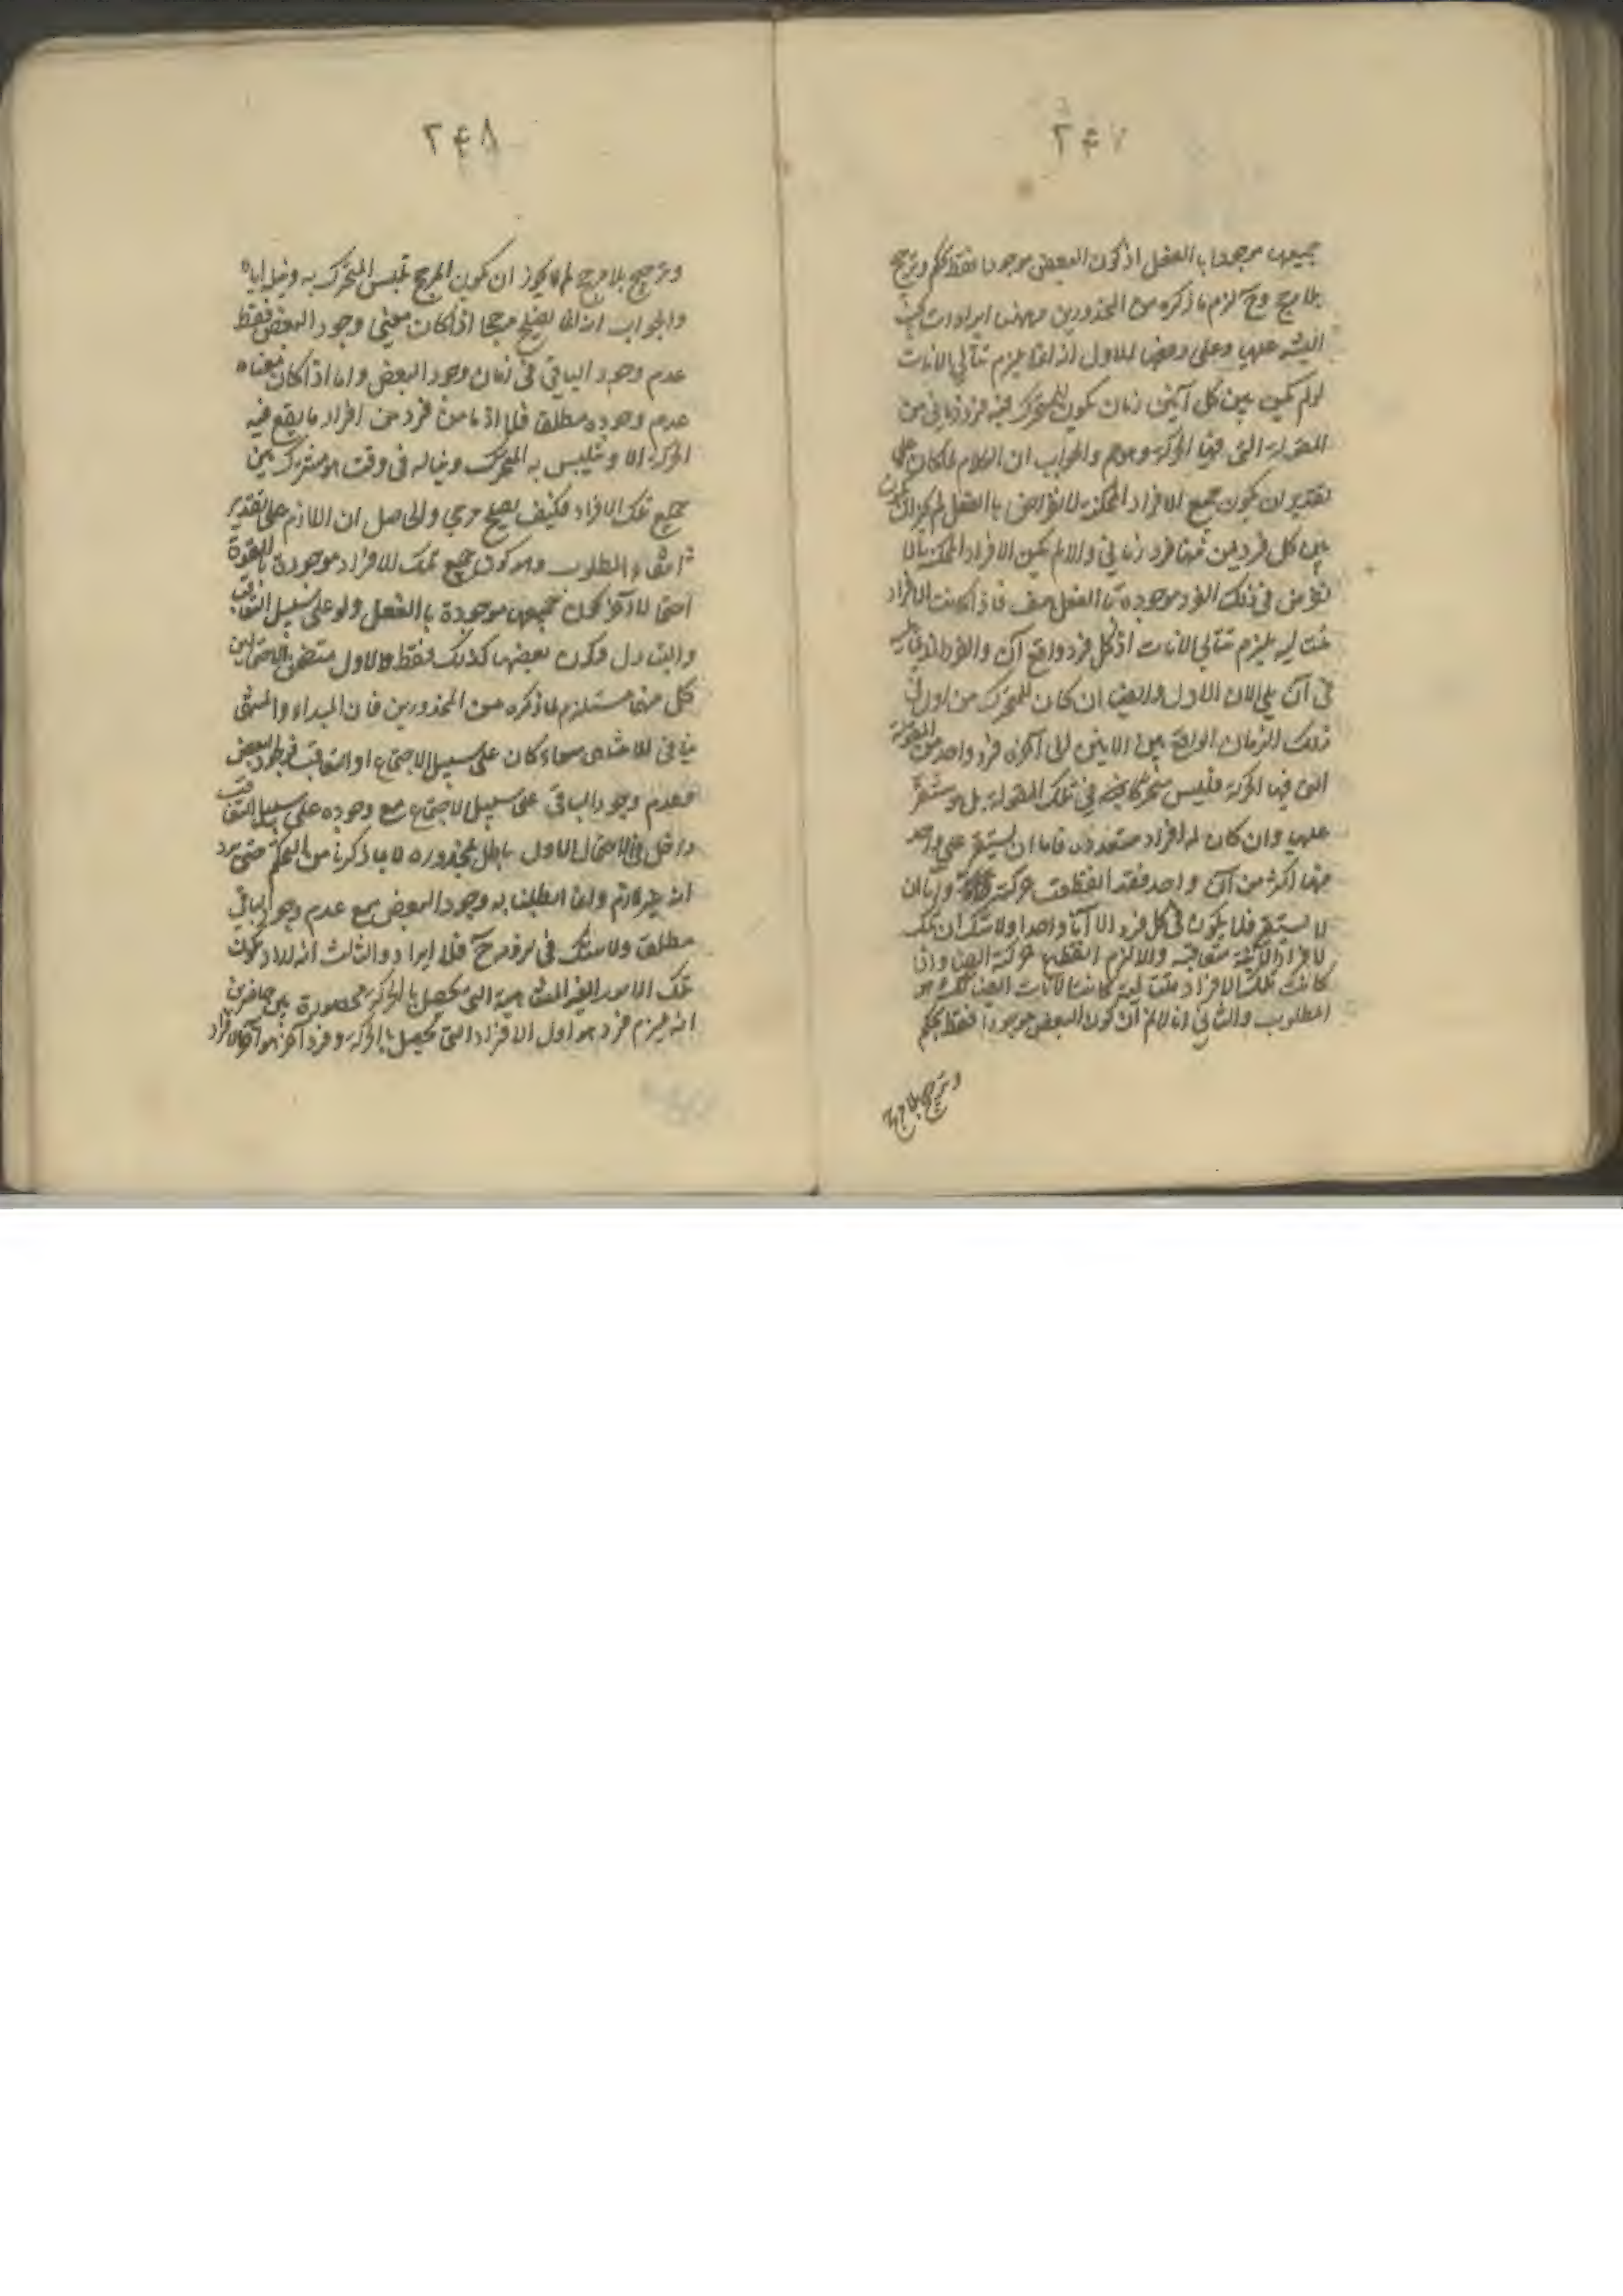 ٢٤٧
جميعها موجودا بالفعل اذ كون البعض موجودا فقط تحكم وترجيح
بلا مرجح وح لزم ما ذكره من المحذورين وههنا ايرادات
عليها وعلى دفعها الاول انه انما يلزم تتالى الانات
لو لم يكن بين كل آنين زمان يكون للمتحرك فيه فرد زمانى من
المقولة التى فيها الحركة وهو والجواب ان الكلام لما كان على
تقدير ان يكون جميع الافراد الممكنة الافتراض بالفعل لم يجز ان يكون
بين كل فردين منها فرد زمانى والا لم يكن الافراد الممكنة
فى ذلك الفرد موجودة بالفعل هف فاذا كانت الافراد
متتالية يلزم تتالى الانات اذ كل فرد واقع فى آن والفرد الذى يليه
فى آن يلى الان الاول وايضا ان كان للمتحرك من اول
ذلك الزمان الواقع بين الانين الى آخره فرد واحد من المقولة
التى فيها الحركة فليس متحركا فيه فى تلك المقولة بل هو مستقر
عليها وان كان له افراد متعددة فاما ان يستقر على واحد
منها اكثر من آن واحد فقد انقطعت حركته واما ان
لا يستقر فلا يكون فى كل فرد الا آنا واحدا ولا شك ان تلك
الافراد الآنية متعاقبة والا لزم انقطاع حركته ايضا واذا
كانت تلك الافراد متتالية كانت الانات ايضا كذلك هو
المطلوب والثانى انا لا نم ان كون البعض موجودا فقط تحكم
وترجيح بلا مرجح
٢٤٨
وترجيح بلا مرجح لم لا يجوز ان يكون المرجح تلبس المتحرك به ونيله اياه
والجواب انه انما يصلح مرجحا اذا كان معنى وجود البعض فقط
عدم وجود الباقى فى زمان وجود البعض واما اذا كان معناه
عدم وجوده مطلقا فلا اذ ما من فرد من افراد ما يقع فيه
الحركة الا ويتلبس به المتحرك ويناله فى وقت هو مشترك بين
جميع تلك الافراد فكيف يصلح مرجحا والحاصل ان اللازم على تقدير
انتفاء المطلوب وهو كون جميع تلك الافراد موجودة بالقوة
احتمالان آخران كون جميعها موجودة بالفعل ولو على سبيل التعاقب
والتبادل وكون بعضها كذلك فقط والاول
فكل منهما مستلزم لما ذكره من المحذورين فان المبداء والمنتهى
ينافى اللاتناهى سواء كان على سبيل الاجتماع او التعاقب فوجود البعض
وعدم وجود الباقى على سبيل الاجتماع مع وجوده على سبيل التعاقب
داخل فى الاحتمال الاول باطل بمحذوره لا بما ذكرنا من التحكم حتى يرد
انه غير لازم وانما ابطلنا به وجود البعض مع عدم وجود الباقى
مطلقا ولا شك فى لزومه ح فلا ايراد والثالث انه لا
تلك الامور الغير المتناهية التى تحصل بالحركة محصورة بين حاصرين
انه يلزم فرد هو اول الافراد التى تحصل بالحركة وفرد آخر هو آخر الافراد